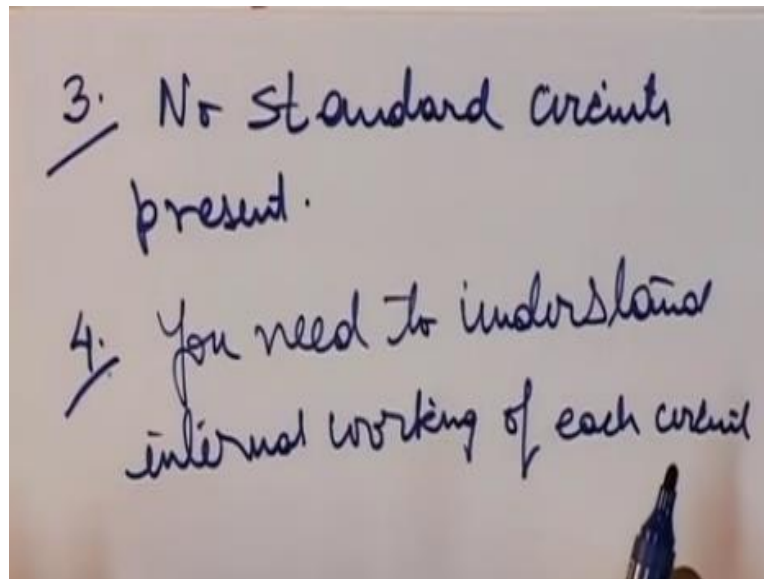 3. No standard circuits
present.
4. You need to understand
internal working of each circuit